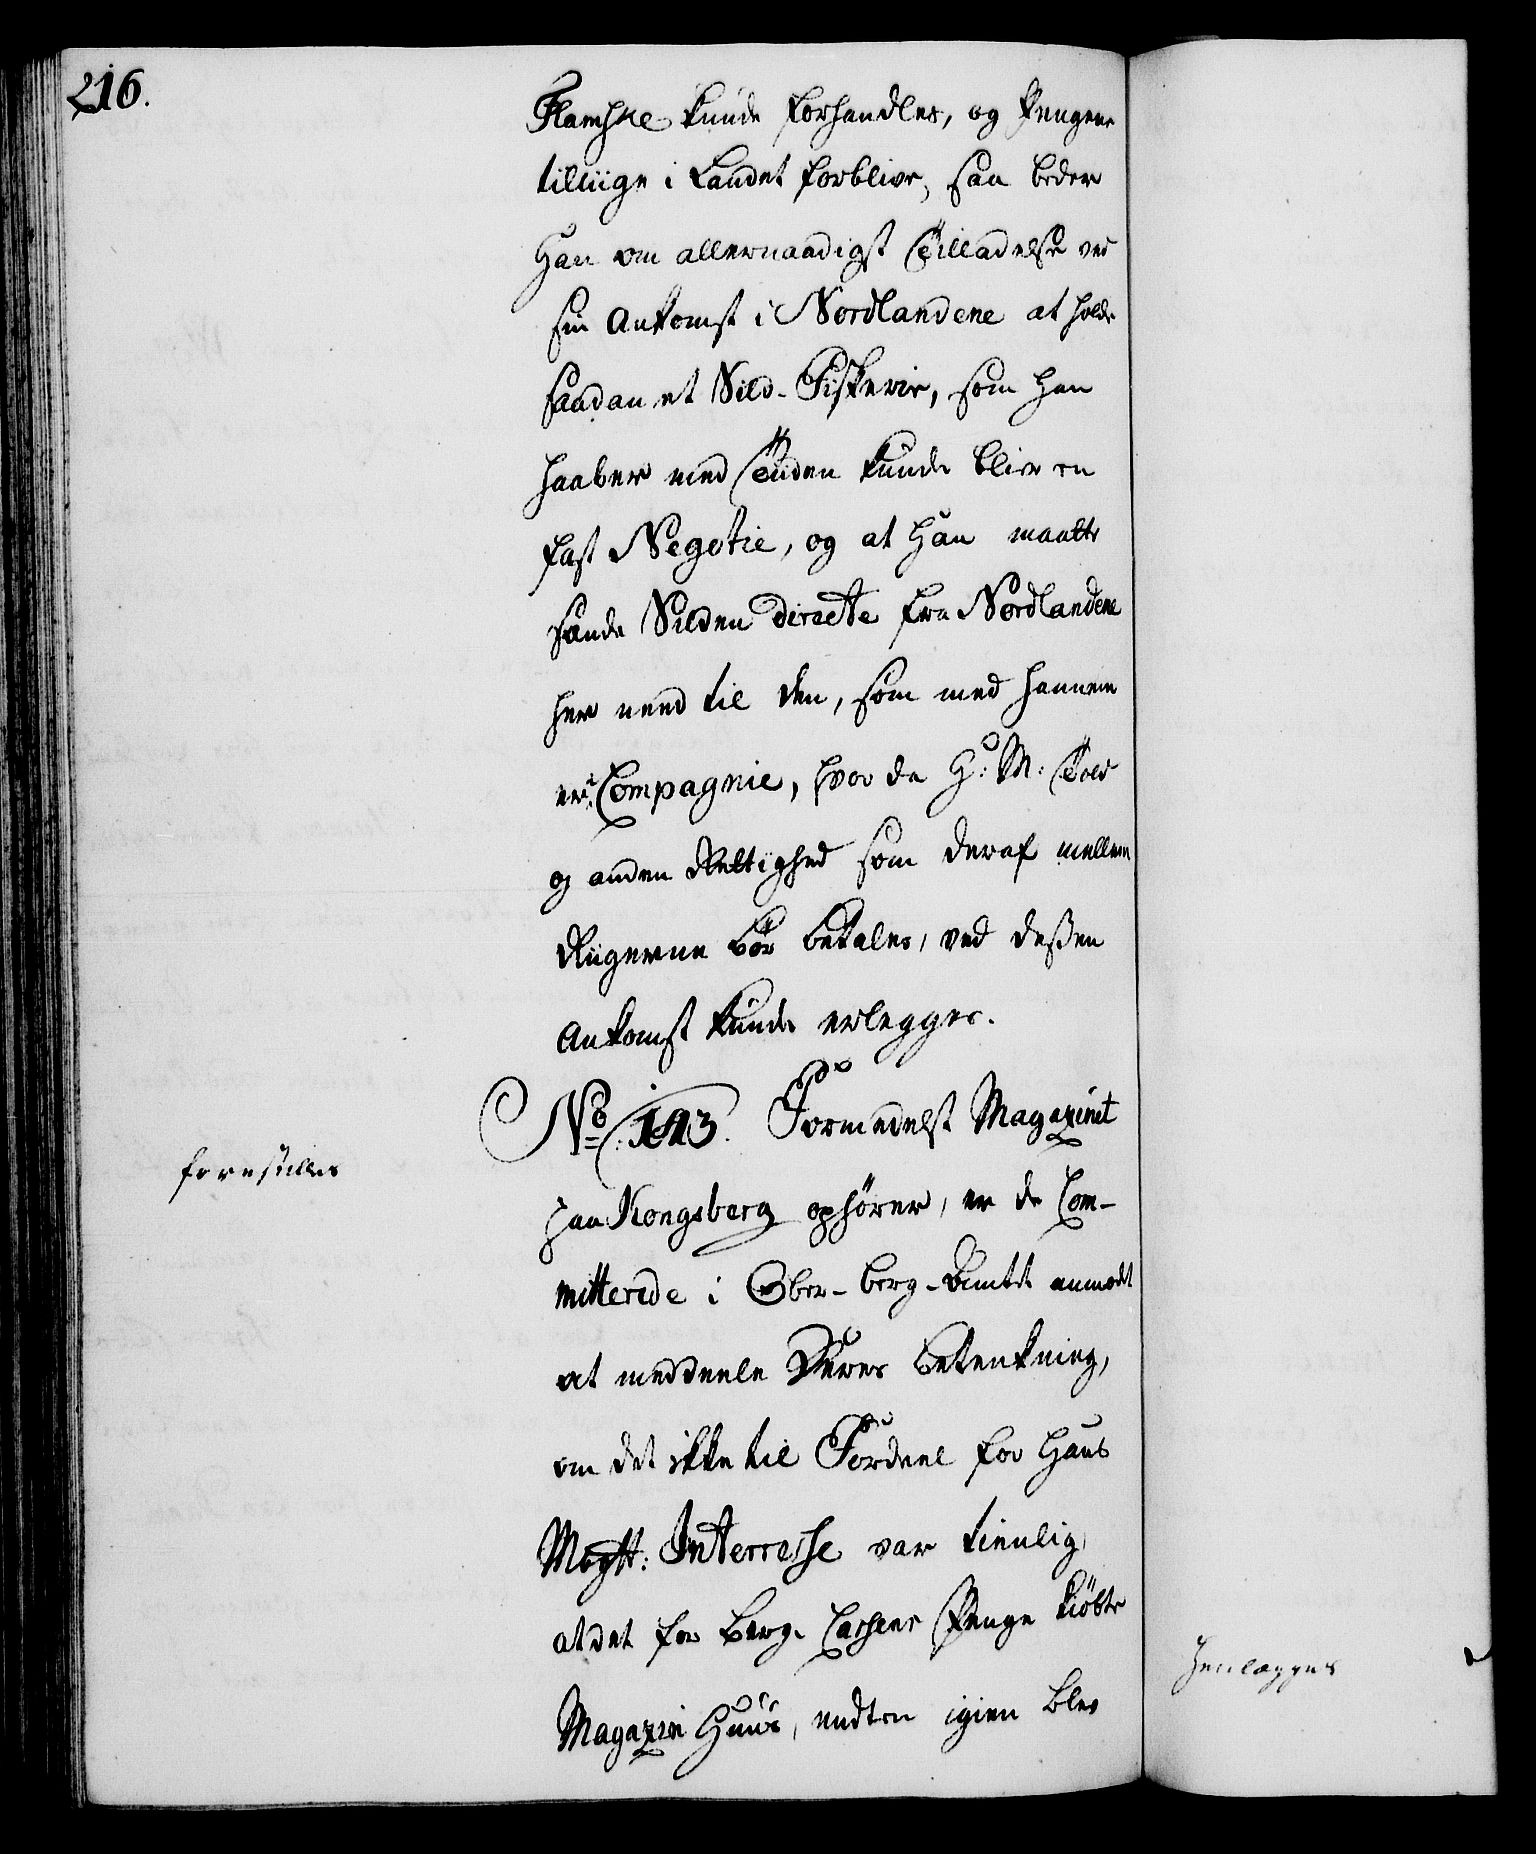 216.
Flamske kunde forhandles, og Pengene
tilliige i Landet forblive, saa beder
Han om allernaadigst Tilladelse ved
sin Ankomst i Nordlandene at holde
saadan et Sild-Fiskerie, som han
haaber med Tiiden kunde blive en
fast Negotie, og at Han maatte
sende Silden directe fra Nordlandene
her need til den, som med hannem
er i Compagnie, hvor da H: M: Told
og anden Rettighed som deraf mellem
Riigerne bør betales, ved dessen
Ankomst kunde erlegges.
forestilles
No: 143. Formedelst Magazinet
paa Kongsberg ophører, er de Com-
mitterede i Ober-Berg-Amtet anmodet
at meddeele Deres Betenkning,
om det ikke til Fordeel for Hans
Maytt: Interresse var tienlig,
at det for Berg-Cassens Penge kiöbte
Magazin Huus, enten igien blev
Henlægges